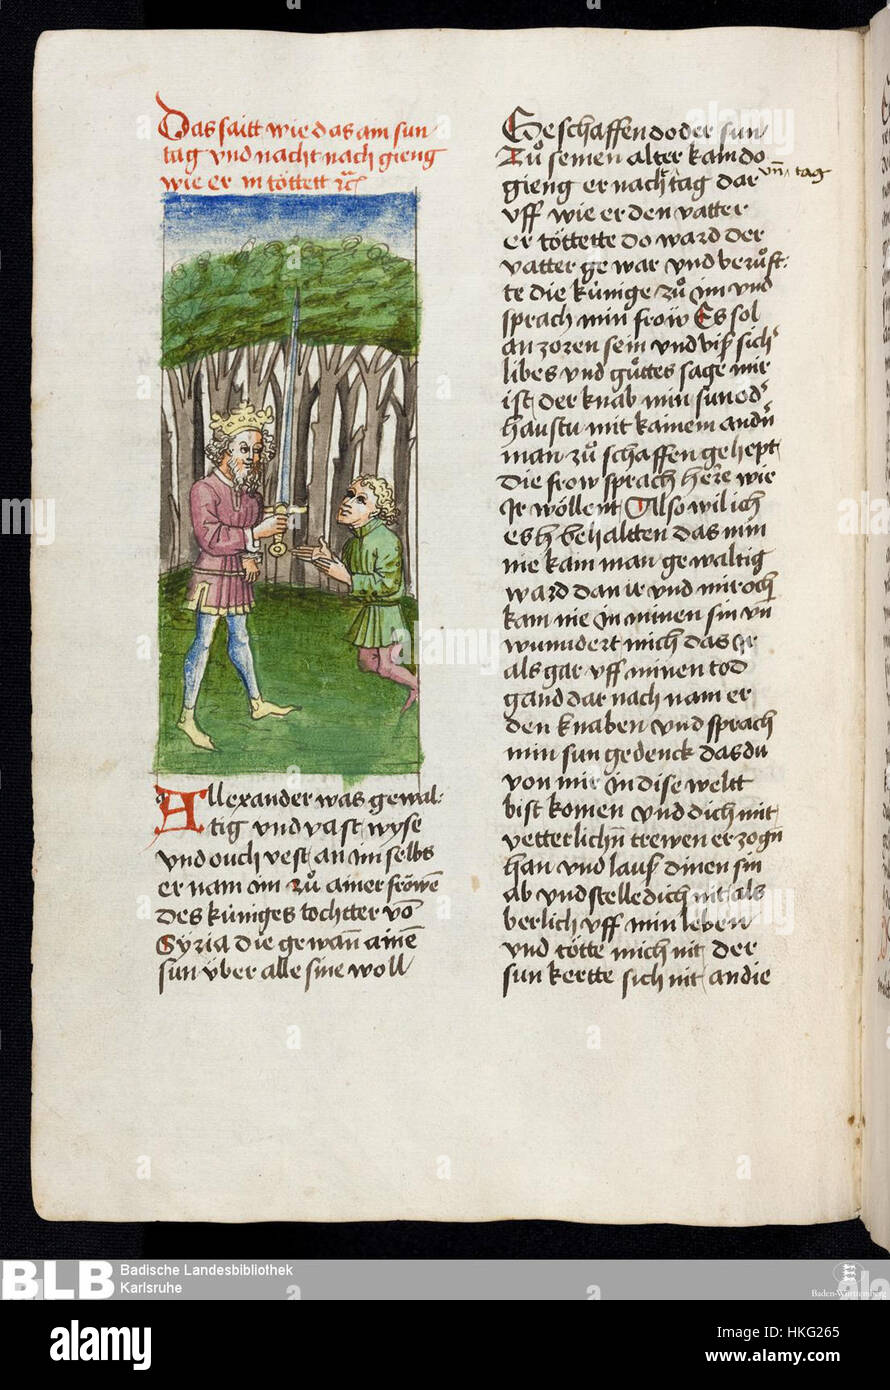 Das saitt wie das am sun
tag vnd nacht nach gieng
wie er in töttett
Allexander was gewal
tig vnd vast wyse
vnd ouch vest an im selbs
er nam im zů ainer fröwē
des küniges tochtter vō
Syria die gewan ainē
sun über alle sine woll
Geschaffen do der sun
Zů seinen alter kam do
gieng er nacht tag dar vn̄ tag
vff wie er den vatter
er töttette do ward der
vatter gewar vnd berůfft
te die künige zů im vnd
sprach min froiw Es sol
an zoren sein vnd
libes vnd gůttes sage mir
ist der knab min sun od
haustu mit kainem andn̄
man zů schaffen gehept
die frow sprach herre wie
Ir wöllent Also wil ich
es behaltten das min
nie kam man gewaltig
ward dan ir vnd mir och
kam nie in minen sin vn̄
wunndert mich das Ir
als gar vff minen tod
gand dar nach nam er
den knaben vnd sprach
min sun gedenck das du
von mir in dise weltt
bist komen vnd dich mit
vetterlichn̄ trewen erzogn̄
han vnd lauß dinen sin
ab vnd stelle dich nit als
berlich vff min leben
vnd tötte mich nit der
sun kertte sich nit an die
BLB Badische Landesbibliothek
Karlsruhe
Baden-Württemberg
alamy
Image ID: HKG265
www.alamy.com